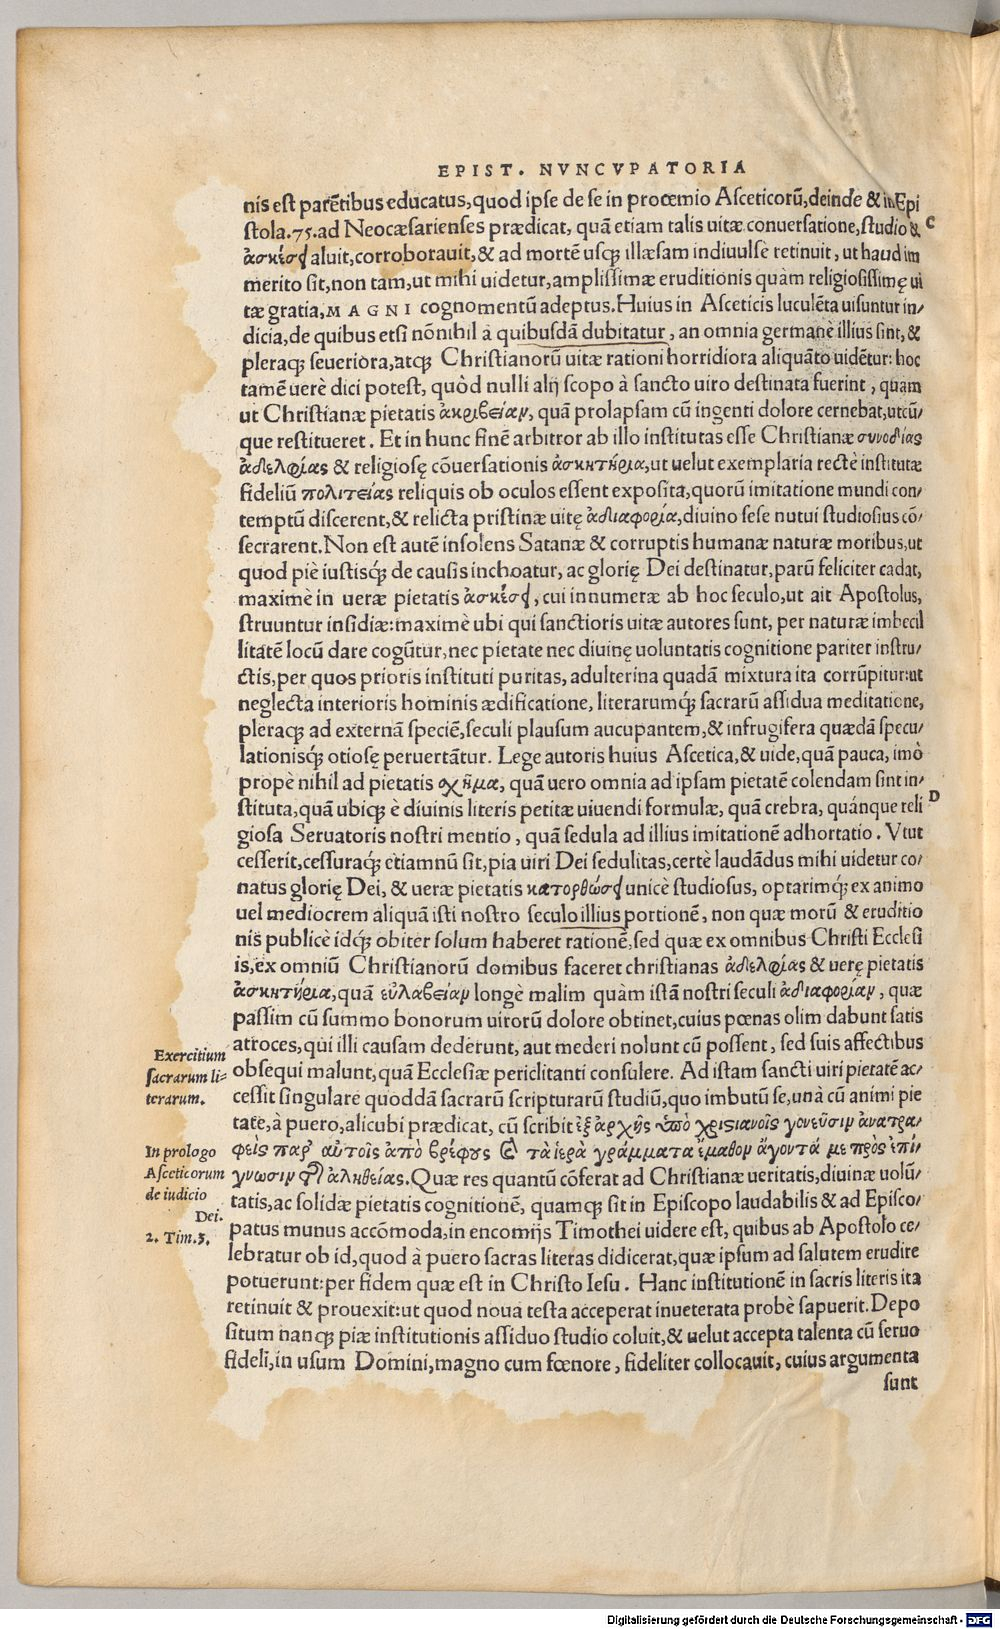 EPIST. NVNCVPATORIA
nis est parētibus educatus, quod ipse de se in proœmio Asceticorū, deinde & in Epi
stola.75. ad Neocæsarienses prædicat, quā etiam talis uitæ conuersatione, studio &
C
ἀσκέσ{ aluit, corroborauit, & ad mortē usq; illæsam indiuulsè retinuit, ut haud im
merito sit, non tam, ut mihi uidetur, amplissimæ eruditionis quàm religiosissimę ui
tæ gratia, MAGNI cognomentū adeptus. Huius in Asceticis luculēta uisuntur in/
dicia, de quibus etsi nōnihil à quibusdā dubitatur, an omnia germanè illius sint, &
pleraq; seueriora, atq; Christianorū uitæ rationi horridiora aliquāto uidētur: hoc
tamē uerè dici potest, quòd nulli alij scopo à sancto uiro destinata fuerint, quam
ut Christianæ pietatis ἀκριβείαν, quā prolapsam cū ingenti dolore cernebat, utcū/
que restitueret. Et in hunc finē arbitror ab illo institutas esse Christianæ συνοδίας
ἀδελφίας & religiosę cōuersationis ἀσκητήρια, ut uelut exemplaria rectè institutæ
fideliū πολιτείας reliquis ob oculos essent exposita, quorū imitatione mundi con/
temptū discerent, & relicta pristinæ uitę ἀδιαφορία, diuino sese nutui studiosius cō/
secrarent. Non est autē insolens Satanæ & corruptis humanæ naturæ moribus, ut
quod piè iustisq́; de causis inchoatur, ac glorię Dei destinatur, parū feliciter cadat,
maximè in ueræ pietatis ἀσκέσ{, cui innumeræ ab hoc seculo, ut ait Apostolus,
struuntur insidiæ: maximè ubi qui sanctioris uitæ autores sunt, per naturæ imbecil
litatē locū dare cogūtur, nec pietate nec diuinę uoluntatis cognitione pariter instru/
ctis, per quos prioris instituti puritas, adulterina quadā mixtura ita corrūpitur: ut
neglecta interioris hominis ædificatione, literarumq́; sacrarū assidua meditatione,
pleraq; ad externā speciē, seculi plausum aucupantem, & infrugifera quædā specu/
lationisq́; otiosę peruertātur. Lege autoris huius Ascetica, & uide, quā pauca, imò
propè nihil ad pietatis οχῆμα, quā uero omnia ad ipsam pietatē colendam sint in/
stituta, quā ubiq; è diuinis literis petitæ uiuendi formulæ, quā crebra, quánque reli
D
giosa Seruatoris nostri mentio, quā sedula ad illius imitationē adhortatio. Vtut
cesserit, cessuraq́; etiamnū sit, pia uiri Dei sedulitas, certè laudādus mihi uidetur co/
natus glorię Dei, & ueræ pietatis κατορθώσ{ unicè studiosus, optarimq́; ex animo
uel mediocrem aliquā isti nostro seculo illius portionē, non quæ morū & eruditio
nis publicè idq́; obiter solum haberet rationē, sed quæ ex omnibus Christi Ecclesi
is, ex omniū Christianorū domibus faceret christianas ἀδελφίας & uerę pietatis
ἀσκητήρια, quā εὐλαβείαν longè malim quàm istā nostri seculi ἀδιαφορίαν, quæ
passim cū summo bonorum uirorū dolore obtinet, cuius pœnas olim dabunt satis
atroces, qui illi causam dederunt, aut mederi nolunt cū possent, sed suis affectibus
obsequi malunt, quā Ecclesiæ periclitanti consulere. Ad istam sancti uiri pietatē ac/
Exercitium
sacrarum li=
terarum.
cessit singulare quoddā sacrarū scripturarū studiū, quo imbutū se, unà cū animi pie
tate, à puero, alicubi prædicat, cū scribit ἐξ ἀρχῆς ὑπὸ χριςιανοῖς γονεῦσιν ἀνατρα/
φεὶς παρ' αὐτοῖς ἀπὸ βρέφους καὶ τὰ ἱερὰ γράμματα ἔμαθον ἄγοντά με πρὸς ἐπί/
In prologo
Asceticorum
de iudicio
Dei.
γνωσιν τῆς ἀληθείας. Quæ res quantū cōferat ad Christianæ ueritatis, diuinæ uolū/
tatis, ac solidæ pietatis cognitionē, quamq; sit in Episcopo laudabilis & ad Episco/
2. Tim.3.
patus munus accōmoda, in encomijs Timothei uidere est, quibus ab Apostolo ce/
lebratur ob id, quod à puero sacras literas didicerat, quæ ipsum ad salutem erudire
potuerunt: per fidem quæ est in Christo Iesu. Hanc institutionē in sacris literis ita
retinuit & prouexit: ut quod noua testa acceperat inueterata probè sapuerit. Depo
situm nanq; piæ institutionis assiduo studio coluit, & uelut accepta talenta cū seruo
fideli, in usum Domini, magno cum fœnore, fideliter collocauit, cuius argumenta
sunt
Digitalisierung gefördert durch die Deutsche Forschungsgemeinschaft - DFG